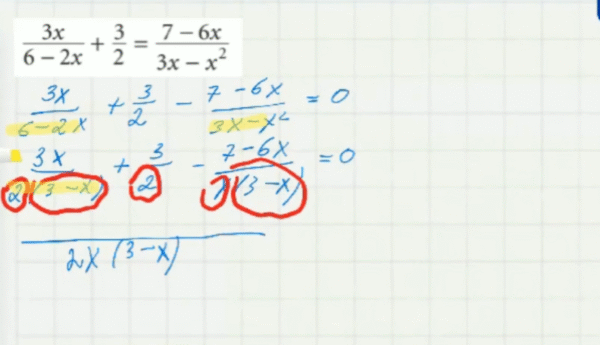 3x/(6 − 2x) + 3/2 = (7 − 6x)/(3x − x²)
3x/(6−2x) + 3/2 − (7−6x)/(3x−x²) = 0
3x/(2(3−x)) + 3/2 − (7−6x)/(x(3−x)) = 0
2x(3−x)